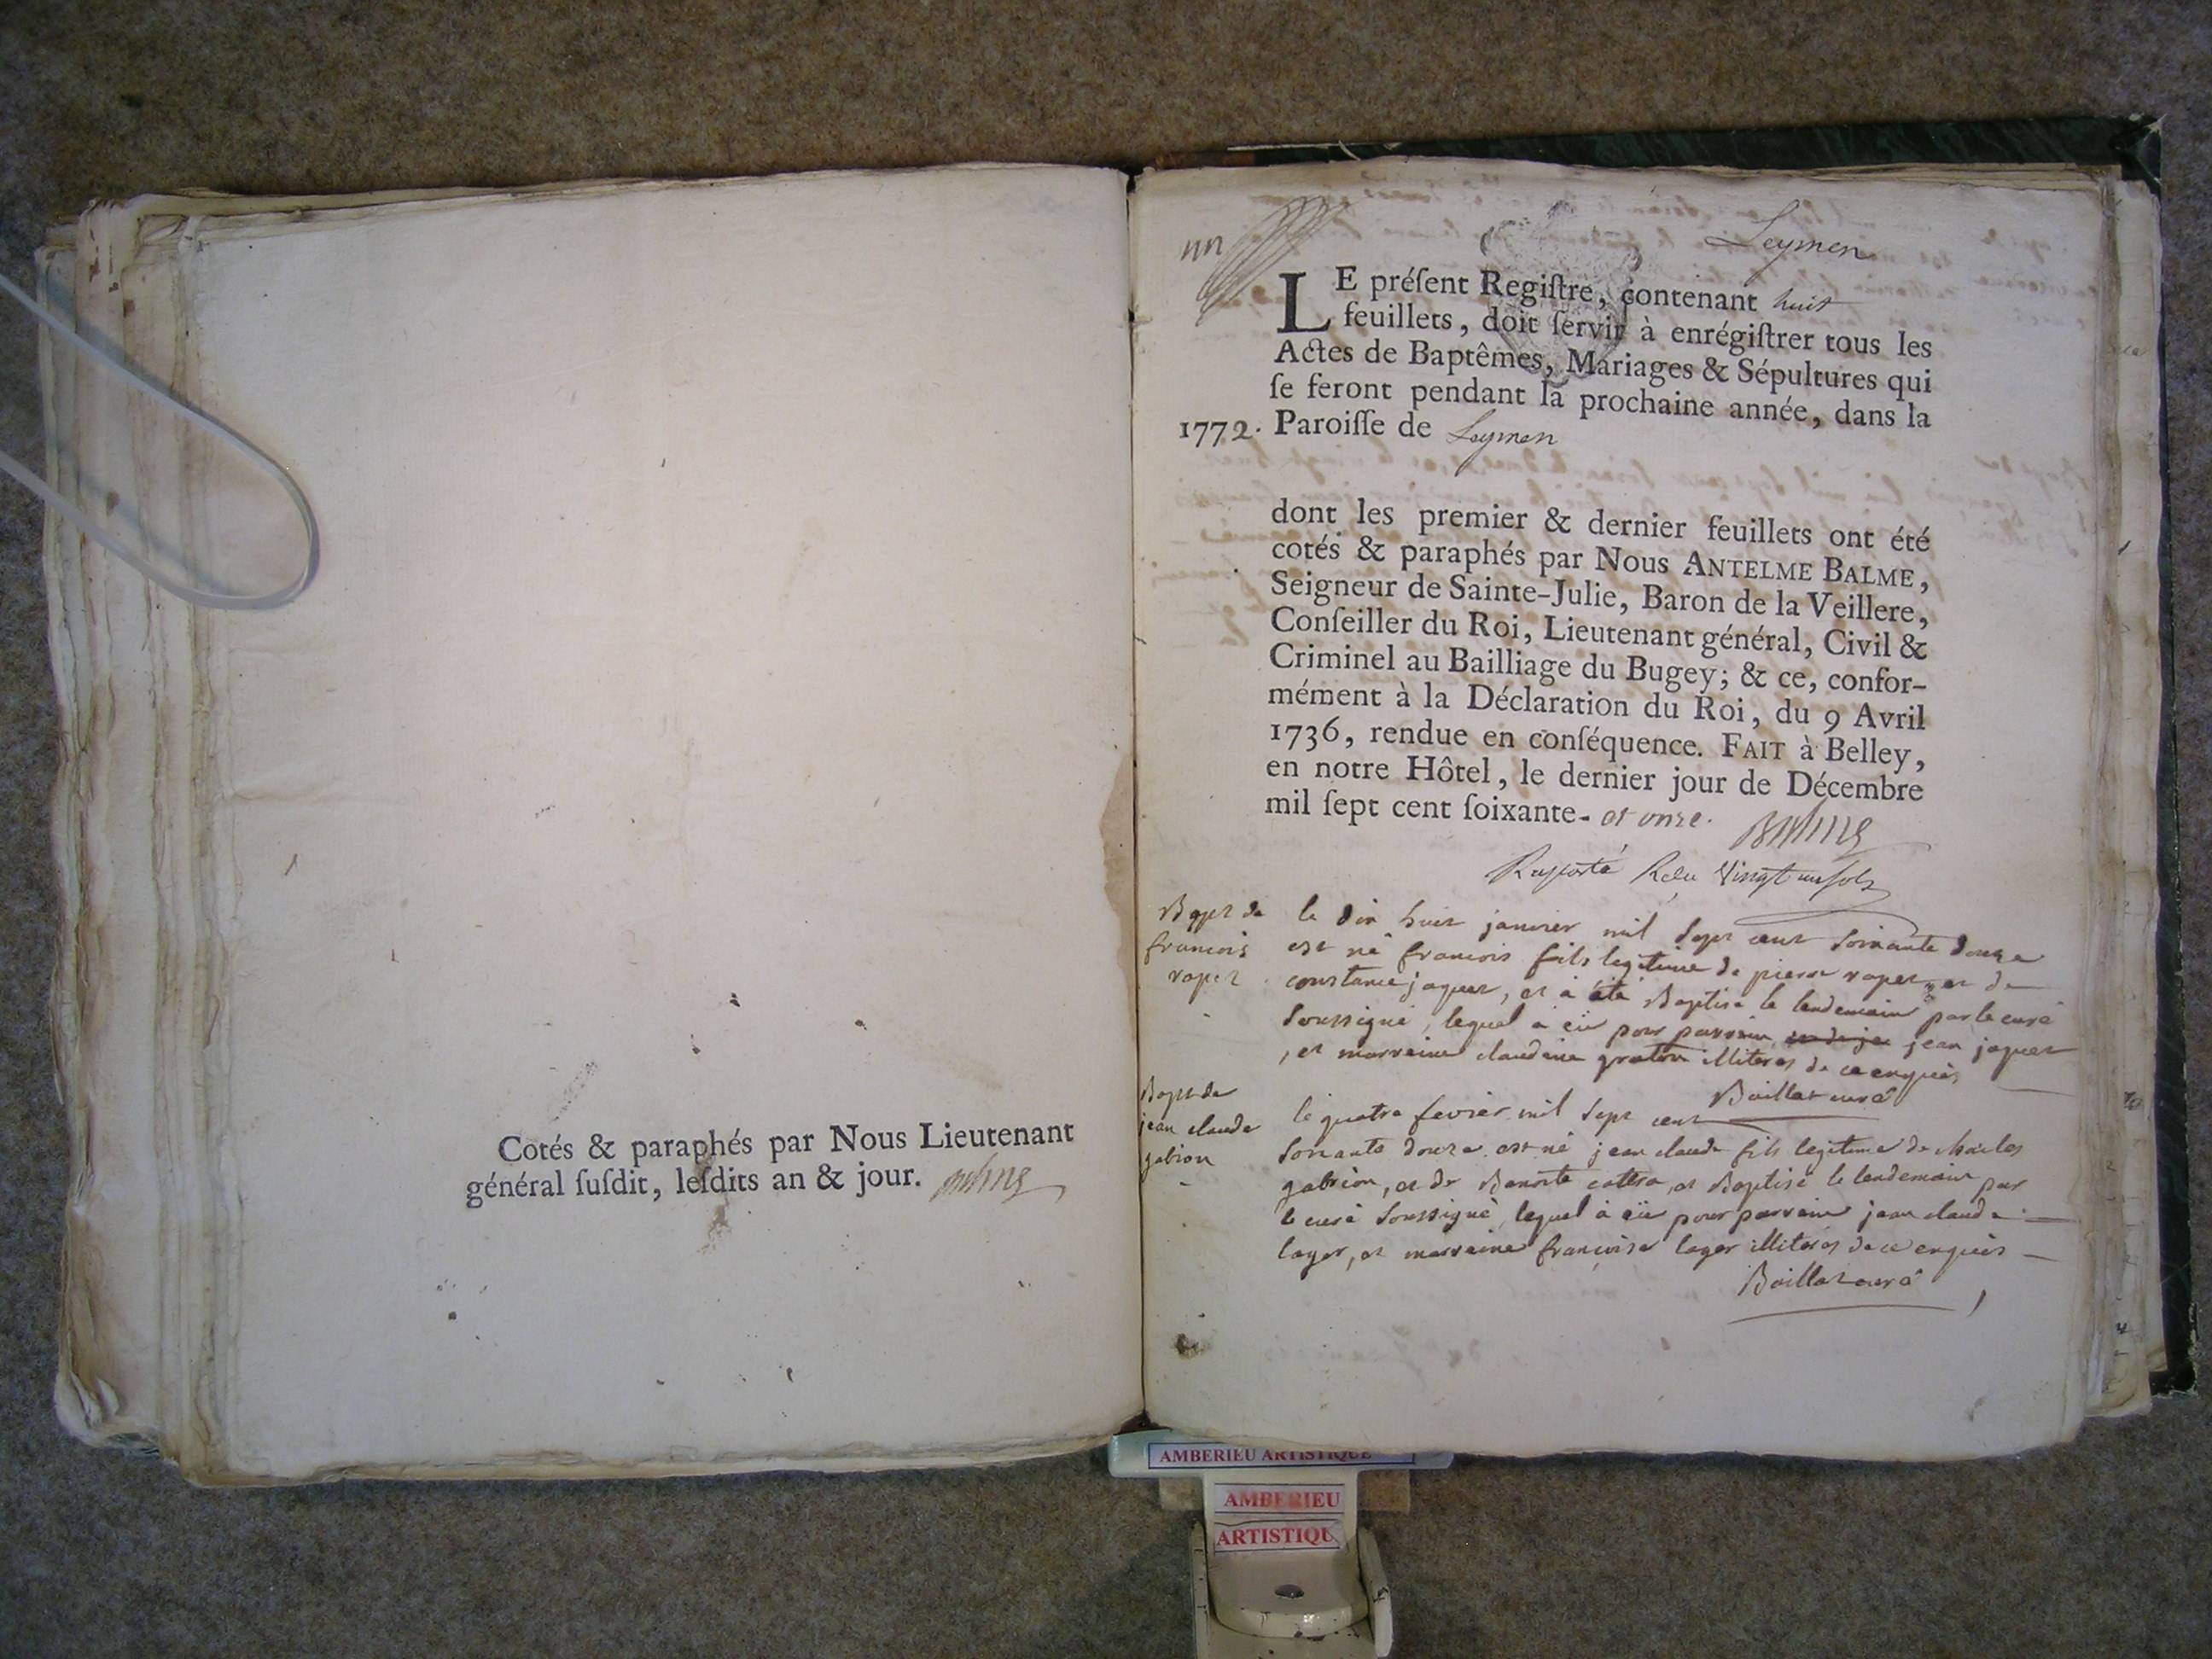 Cotés & paraphés par Nous Lieutenant
général ſuſdit, leſdits an & jour.
un
Leymen
LE préſent Regiſtre, contenant huit
feuillets, doit ſervir à enrégiſtrer tous les
Actes de Baptêmes, Mariages & Sépultures qui
ſe feront pendant la prochaine année, dans la
1772. Paroiſſe de Leymen
dont les premier & dernier feuillets ont été
cotés & paraphés par Nous ANTELME BALME,
Seigneur de Sainte-Julie, Baron de la Veillere,
Conſeiller du Roi, Lieutenant général, Civil &
Criminel au Bailliage du Bugey; & ce, confor-
mément à la Déclaration du Roi, du 9 Avril
1736, rendue en conſéquence. FAIT à Belley,
en notre Hôtel, le dernier jour de Décembre
mil ſept cent ſoixante- et onze.
Vingt un sols
Bapt de
francois
roper
le dix huit janvier mil sept cent soixante douze
est né francois fils legitime de pierre roper, et de
constance jaquet, et a été Baptisé le lendemain par le curé
soussigné, lequel a eu pour parrain jean jaquet
, et marraine claudine graton illiteres de ce enquis
Baillat curé
Bapt de
jean claude
gabrion
le quatre fevrier mil sept cent
soixante douze est né jean claude fils legitime de charles
gabrion, et de Benoite cottra, et Baptisé le lendemain par
le curé soussigné, lequel a eu pour parrain jean claude
loger, et marraine francoise loger illiteres de ce enquis
Baillat curé
AMBERIEU ARTISTIQUE
AMBERIEU
ARTISTIQU